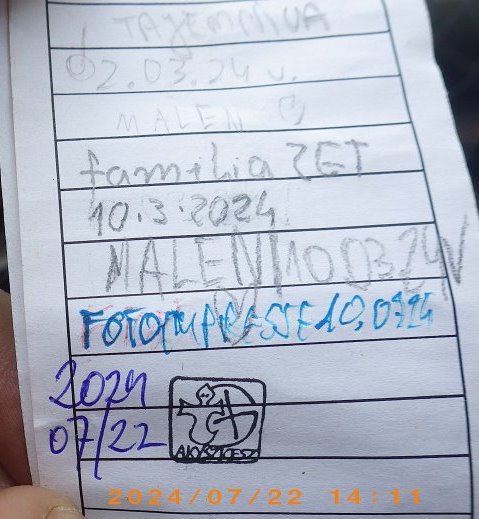 02.03.24
MALEN
familia ZET
10.3.2024
MALEN 10 03 24
FOTOIMPRESJE 10,03,24
2024
07/22
2024/07/22 14:11